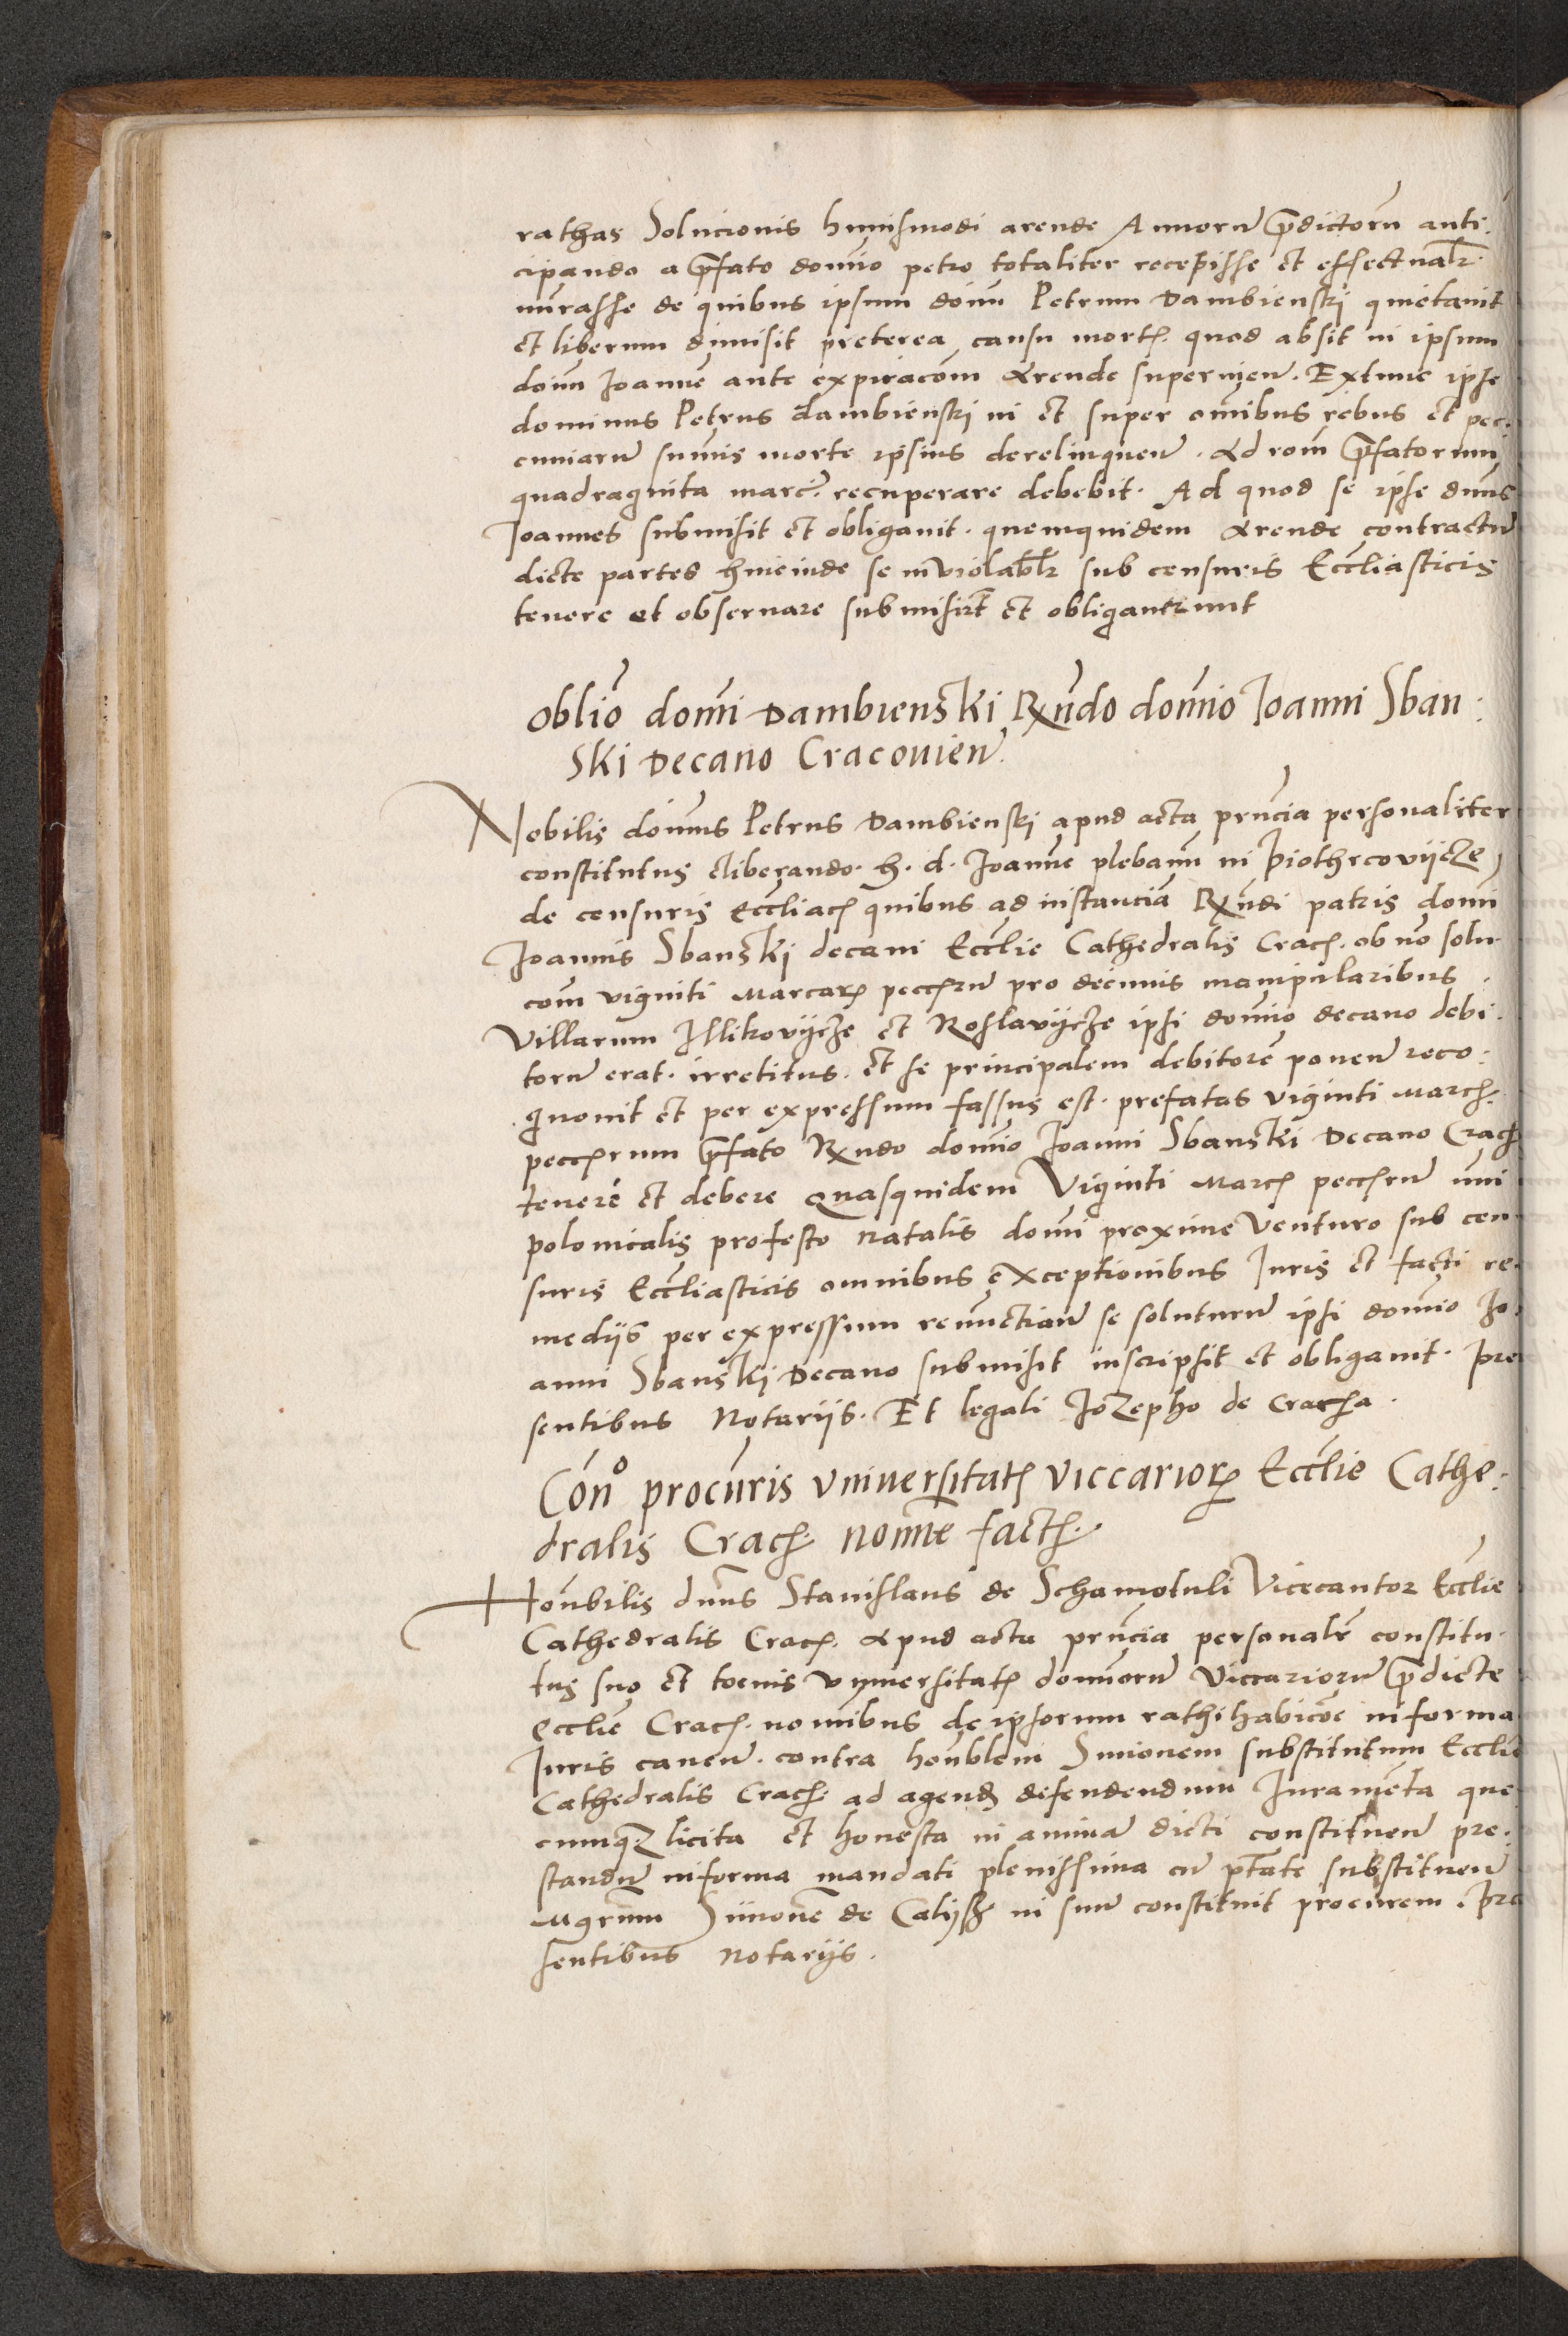 rathas Solucionis huiusmodi arende Annorum p̄dictorum anti-
cipando a p̄fato domino petro totaliter recepisse et effectualr̄
nūrasse de quibus ipsum doīnm Petrum Dambienski quietavit
et liberum dimisit preterea causu mortis quod absit in ipsum
doīnm Joannē ante expiracōm Arende supervien̄. Extunc ipse
dominus Petrus dambienski in et super omībus rebus et pec-
cuniarum summis morte ipsius derelinquen̄. Ad rom̄ p̄fatorum
quadraginta marc̄. recuperare debebit. Ad quod se ipse dnūs
Joannes submisit et obligavit. quemquidem Arende contractum
dicte partes hincinde se inviolablr̄ sub censuris Eccl̄iasticis
tenere et observare submisirt̄ et obligaverunt
Oblīo domī Dambienski Rn̄do domīo Joanni Sban-
ski Decano Cracovien̄.
Nobilis doīnus Petrus Dambienski apud acta prn̄cia personaliter
constitutus cliberando. h. d. Joannē plebanū in Piothrcovijcze
de censuris eccl̄iacis quibus ad instanciā Rn̄di patris domī
Joannis Sbanski decani Eccl̄ie Cathedralis Crac. ob nō solu-
com̄ viginti Marcarum pecc̄rum pro decimis manipularibus
Villarum Illikovijcze et Roslavijcze ipsi domīo decano debi-
torum erat. irretitus. et se principalem debitorē ponen̄ reco-
gnovit et per expressum fassus est. prefatas viginti Marc.
pecc̄rum p̄fato Rn̄do domīo Joanni Sbanski Decano Crac.
tenere et debere Quasquidem Viginti Marc. pecc̄rum nūi
polonicalis profesto natalis domī proxime Venturo sub cen-
suris Eccl̄iasticis omnibus exceptionibus Juris et facti re-
medijs per expressum renunctian̄ se soluturum ipsi domīo Jo-
anni Sbanski Decano submisit inscripsit et obligavit. Pre-
sentibus Notarijs. Et legali Jozepho de Cracha.
Con̄o procuris̄ Universitatis viccariorum Eccl̄ie Cathe-
dralis Crac. nomīe fact.
Honbilis dnūs Stanislaus de Schamotuli Vicecantor Eccl̄ie
Cathedralis Crac. Apud acta prn̄cia personalr̄ constitu-
tus suo et tocius vnijversitatis domīnorum Viccariorum p̄dicte
Eccl̄ie Crac. nomībus de ipsorum rathihabicōe in forma
Juris caven̄. contra honblem Simonem substitutum Eccl̄ie
Cathedralis Crac. ad agend. defendendum Juramenta que-
cumque licita et honesta in animam dicti constituen̄ pre-
standum in forma mandati plenissima cum ptāte substituen̄
Mgrm̄ Simonē de Calijsz in suum constituit procurem. Pre-
sentibus Notarijs.